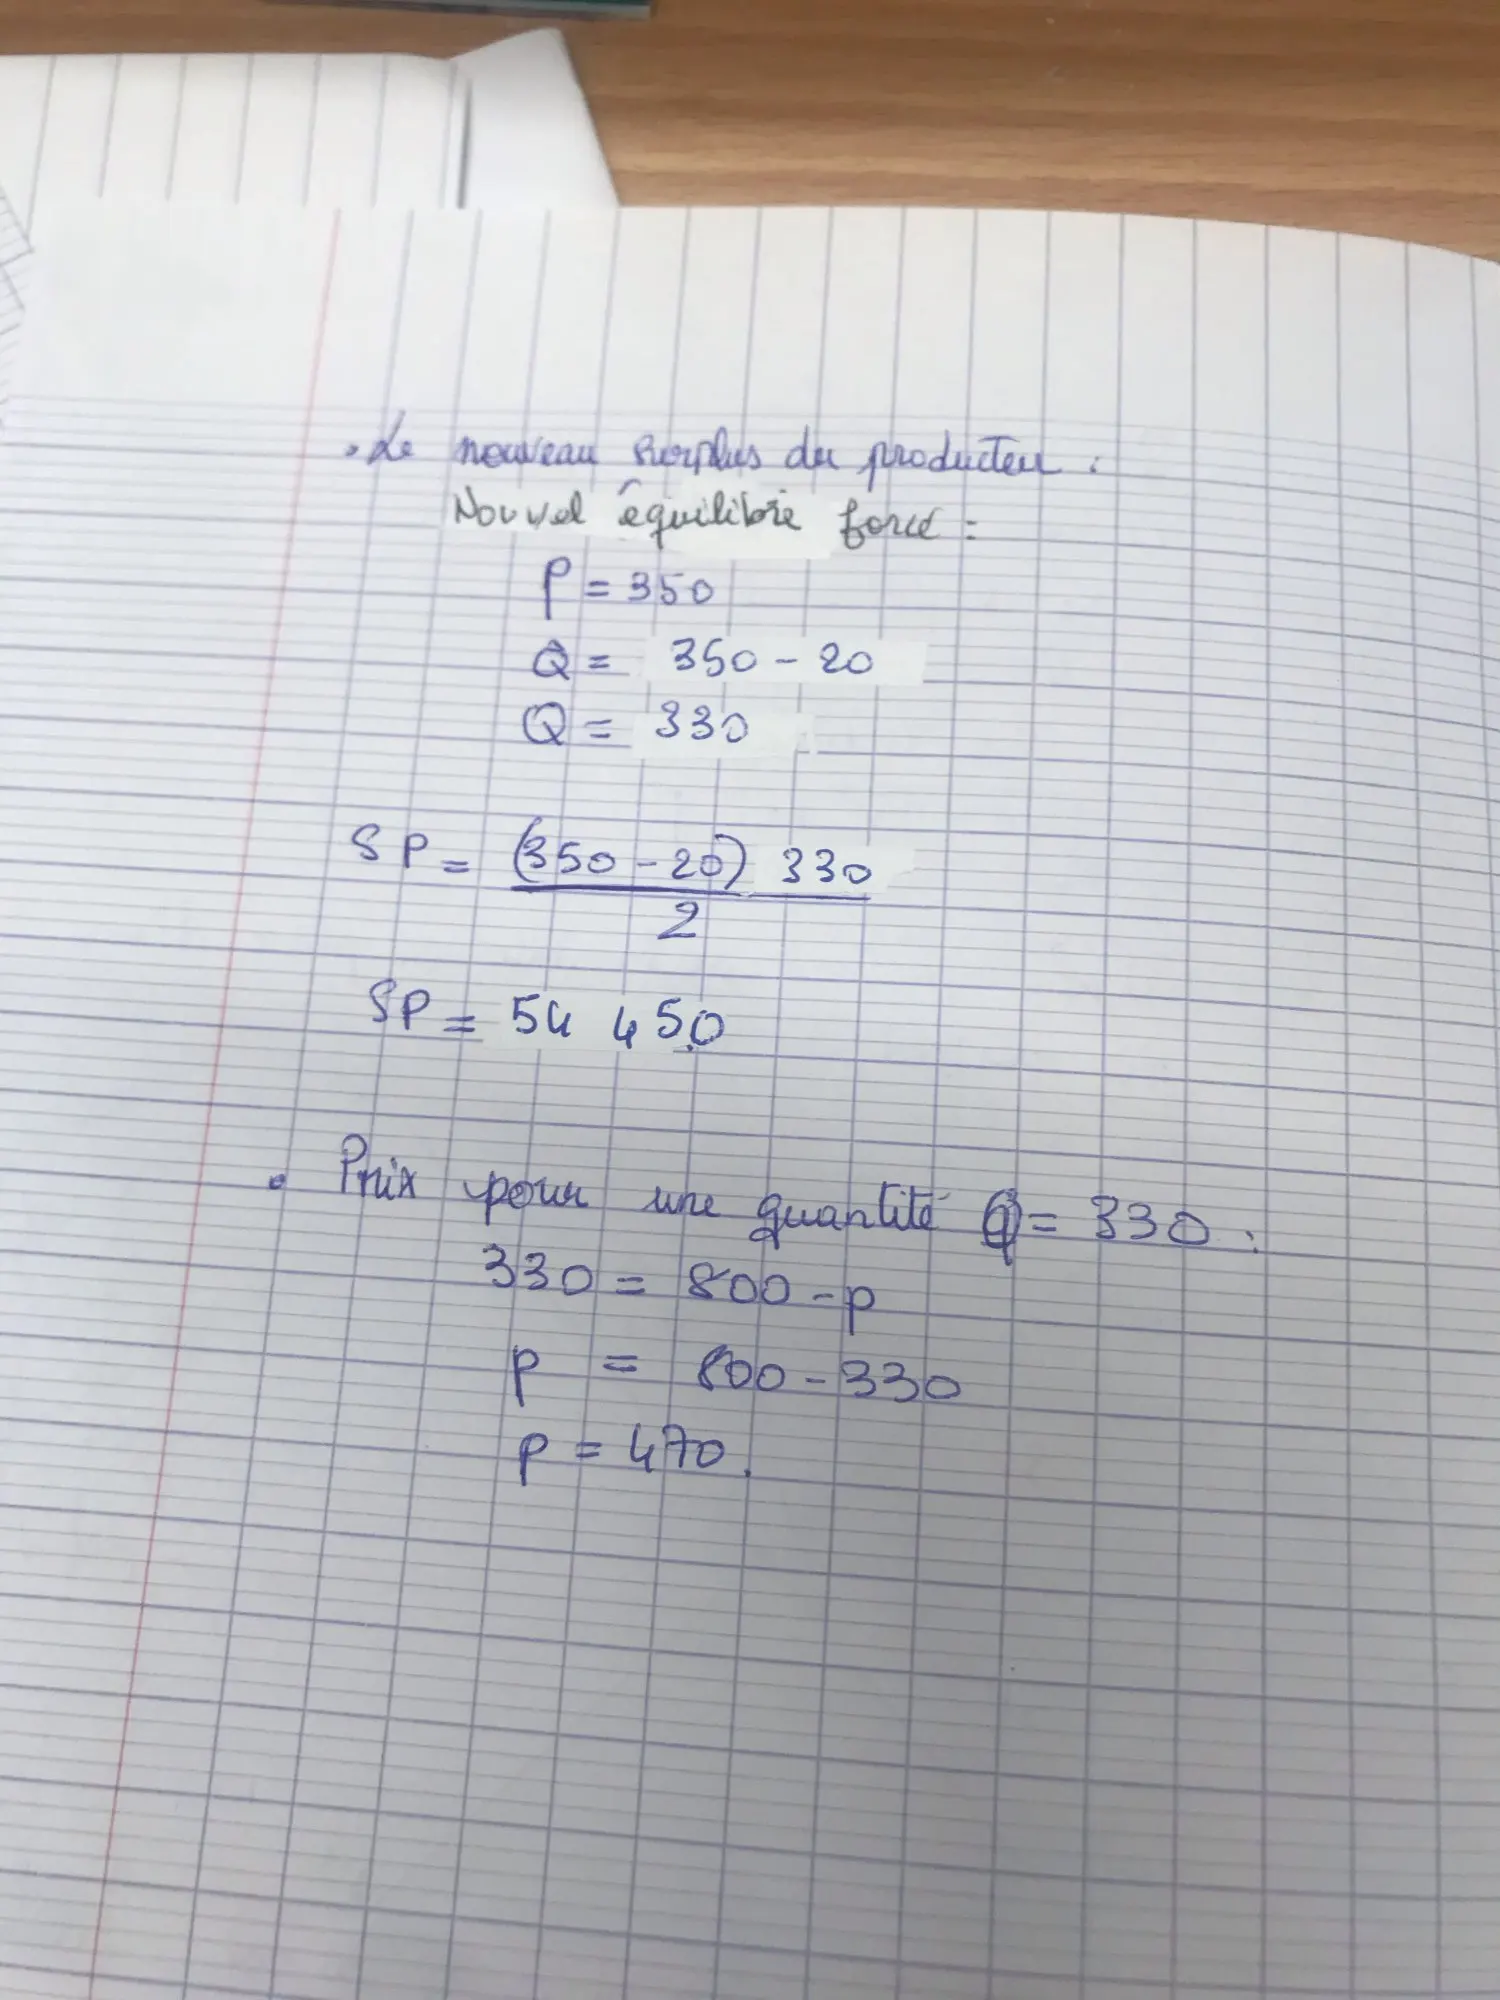 . Le nouveau surplus du producteur :
Nouvel équilibre forcé :
P = 350
Q = 350 - 20
Q = 330
SP = (350 - 20) 330
2
SP = 54 450
. Prix pour une quantité Q = 330 :
330 = 800 - p
p = 800 - 330
p = 470.